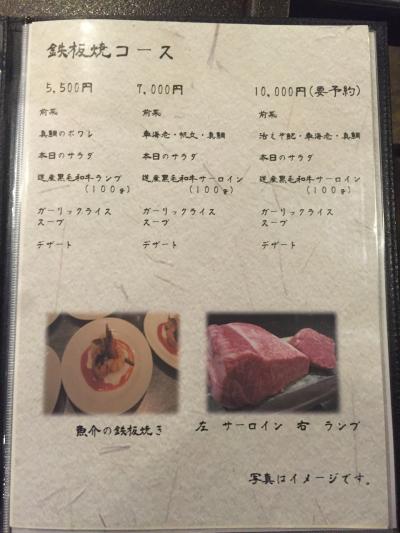 鉄板焼コース
5,500円
前菜
真鯛のポワレ
本日のサラダ
道産黒毛和牛ランプ
(100g)
ガーリックライス
スープ
デザート
7,000円
前菜
車海老・帆立・真鯛
本日のサラダ
道産黒毛和牛サーロイン
(100g)
ガーリックライス
スープ
デザート
10,000円(要予約)
前菜
活えぞ鮑・車海老・真鯛
本日のサラダ
道産黒毛和牛サーロイン
(100g)
ガーリックライス
スープ
デザート
魚介の鉄板焼き
左 サーロイン 右 ランプ
写真はイメージです。